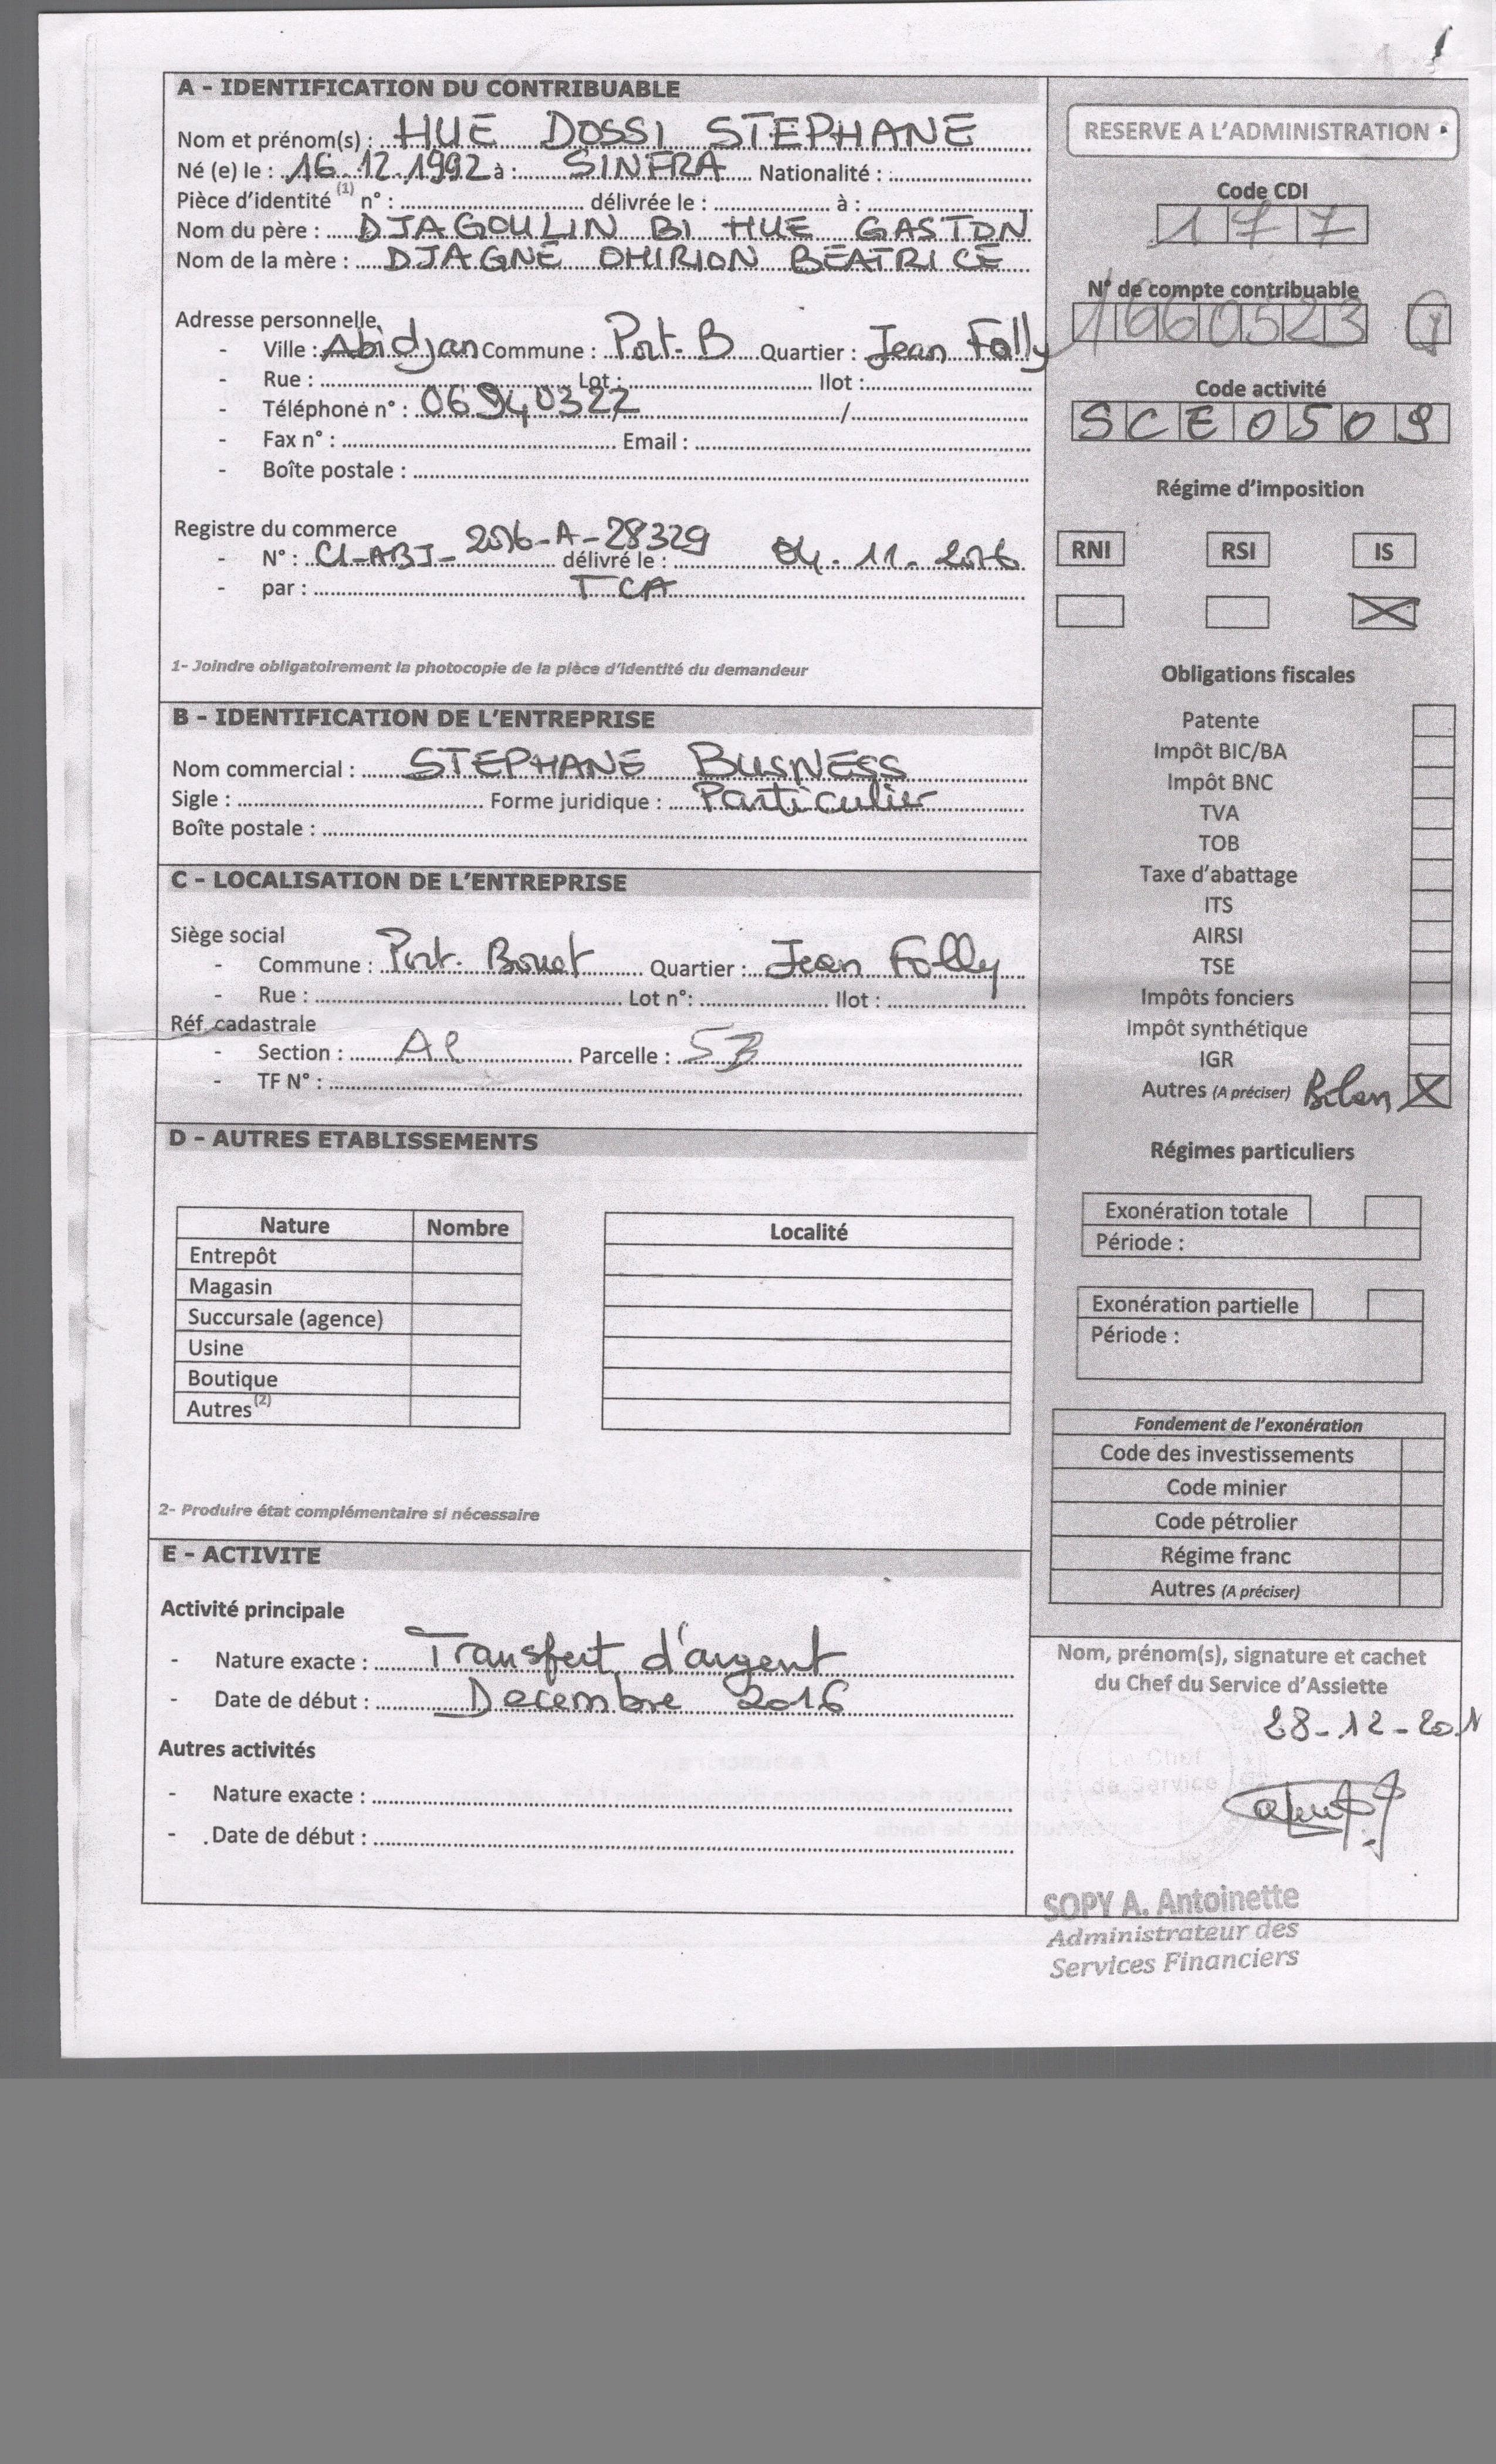 A - IDENTIFICATION DU CONTRIBUABLE
Nom et prénom(s) : HUE DOSSI STEPHANE
Né (e) le : 16.12.1992 à : SINFRA Nationalité :
Pièce d'identité (1) n° : délivrée le : à :
Nom du père : DJAGOULIN BI HUE GASTON
Nom de la mère : DJAGNE OHIRION BEATRICE
Adresse personnelle
- Ville : Abidjan Commune : Port-B Quartier : Jean Folly
- Rue : Lot : Ilot :
- Téléphone n° : 06940322 / /
- Fax n° : Email :
- Boîte postale :
Registre du commerce
- N° : CI-ABJ-2016-A-28329 délivré le : 04-11-2016
- par : TCA
1- Joindre obligatoirement la photocopie de la pièce d'identité du demandeur
B - IDENTIFICATION DE L'ENTREPRISE
Nom commercial : STEPHANE BUSNESS
Sigle : Forme juridique : Particulier
Boîte postale :
C - LOCALISATION DE L'ENTREPRISE
Siège social
- Commune : Port-Bouet Quartier : Jean Folly
- Rue : Lot n°: Ilot :
Réf. cadastrale
- Section : Parcelle :
- TF N° :
D - AUTRES ETABLISSEMENTS
Nature Nombre Localité
Entrepôt
Magasin
Succursale (agence)
Usine
Boutique
Autres (2)
2- Produire état complémentaire si nécessaire
E - ACTIVITE
Activité principale
- Nature exacte : Transfert d'argent
- Date de début : Decembre 2016
Autres activités
- Nature exacte :
- Date de début :
RESERVE A L'ADMINISTRATION
Code CDI
177
N° de compte contribuable
1660523
Code activité
SCE0509
Régime d'imposition
RNI RSI IS
X
Obligations fiscales
Patente
Impôt BIC/BA
Impôt BNC
TVA
TOB
Taxe d'abattage
ITS
AIRSI
TSE
Impôts fonciers
Impôt synthétique
IGR
Autres (A préciser) Bilan X
Régimes particuliers
Exonération totale
Période :
Exonération partielle
Période :
Fondement de l'exonération
Code des investissements
Code minier
Code pétrolier
Régime franc
Autres (A préciser)
Nom, prénom(s), signature et cachet
du Chef du Service d'Assiette
28-12-201
Le Chef
de Service
SOPY A. Antoinette
Administrateur des
Services Financiers